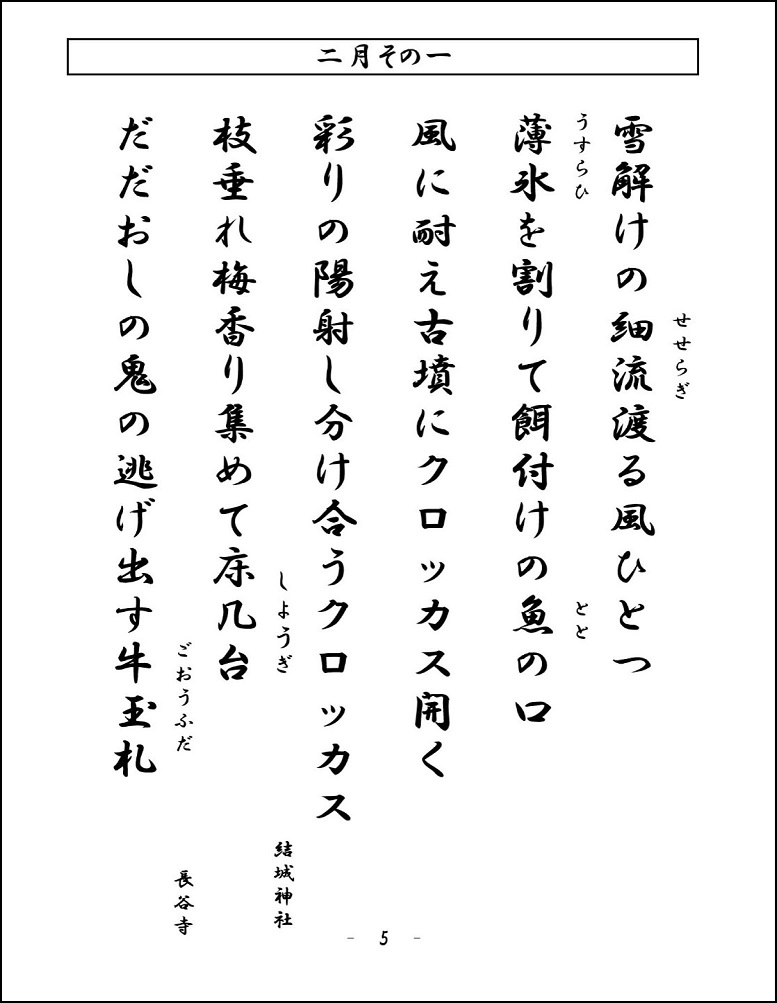 二月その一
せせらぎ
雪解けの細流渡る風ひとつ
うすらひ とと
薄氷を割りて餌付けの魚の口
風に耐え古墳にクロッカス開く
彩りの陽射し分け合うクロッカス
しょうぎ 結城神社
枝垂れ梅香り集めて床几台
ごおうふだ 長谷寺
だだおしの鬼の逃げ出す牛玉札
- 5 -